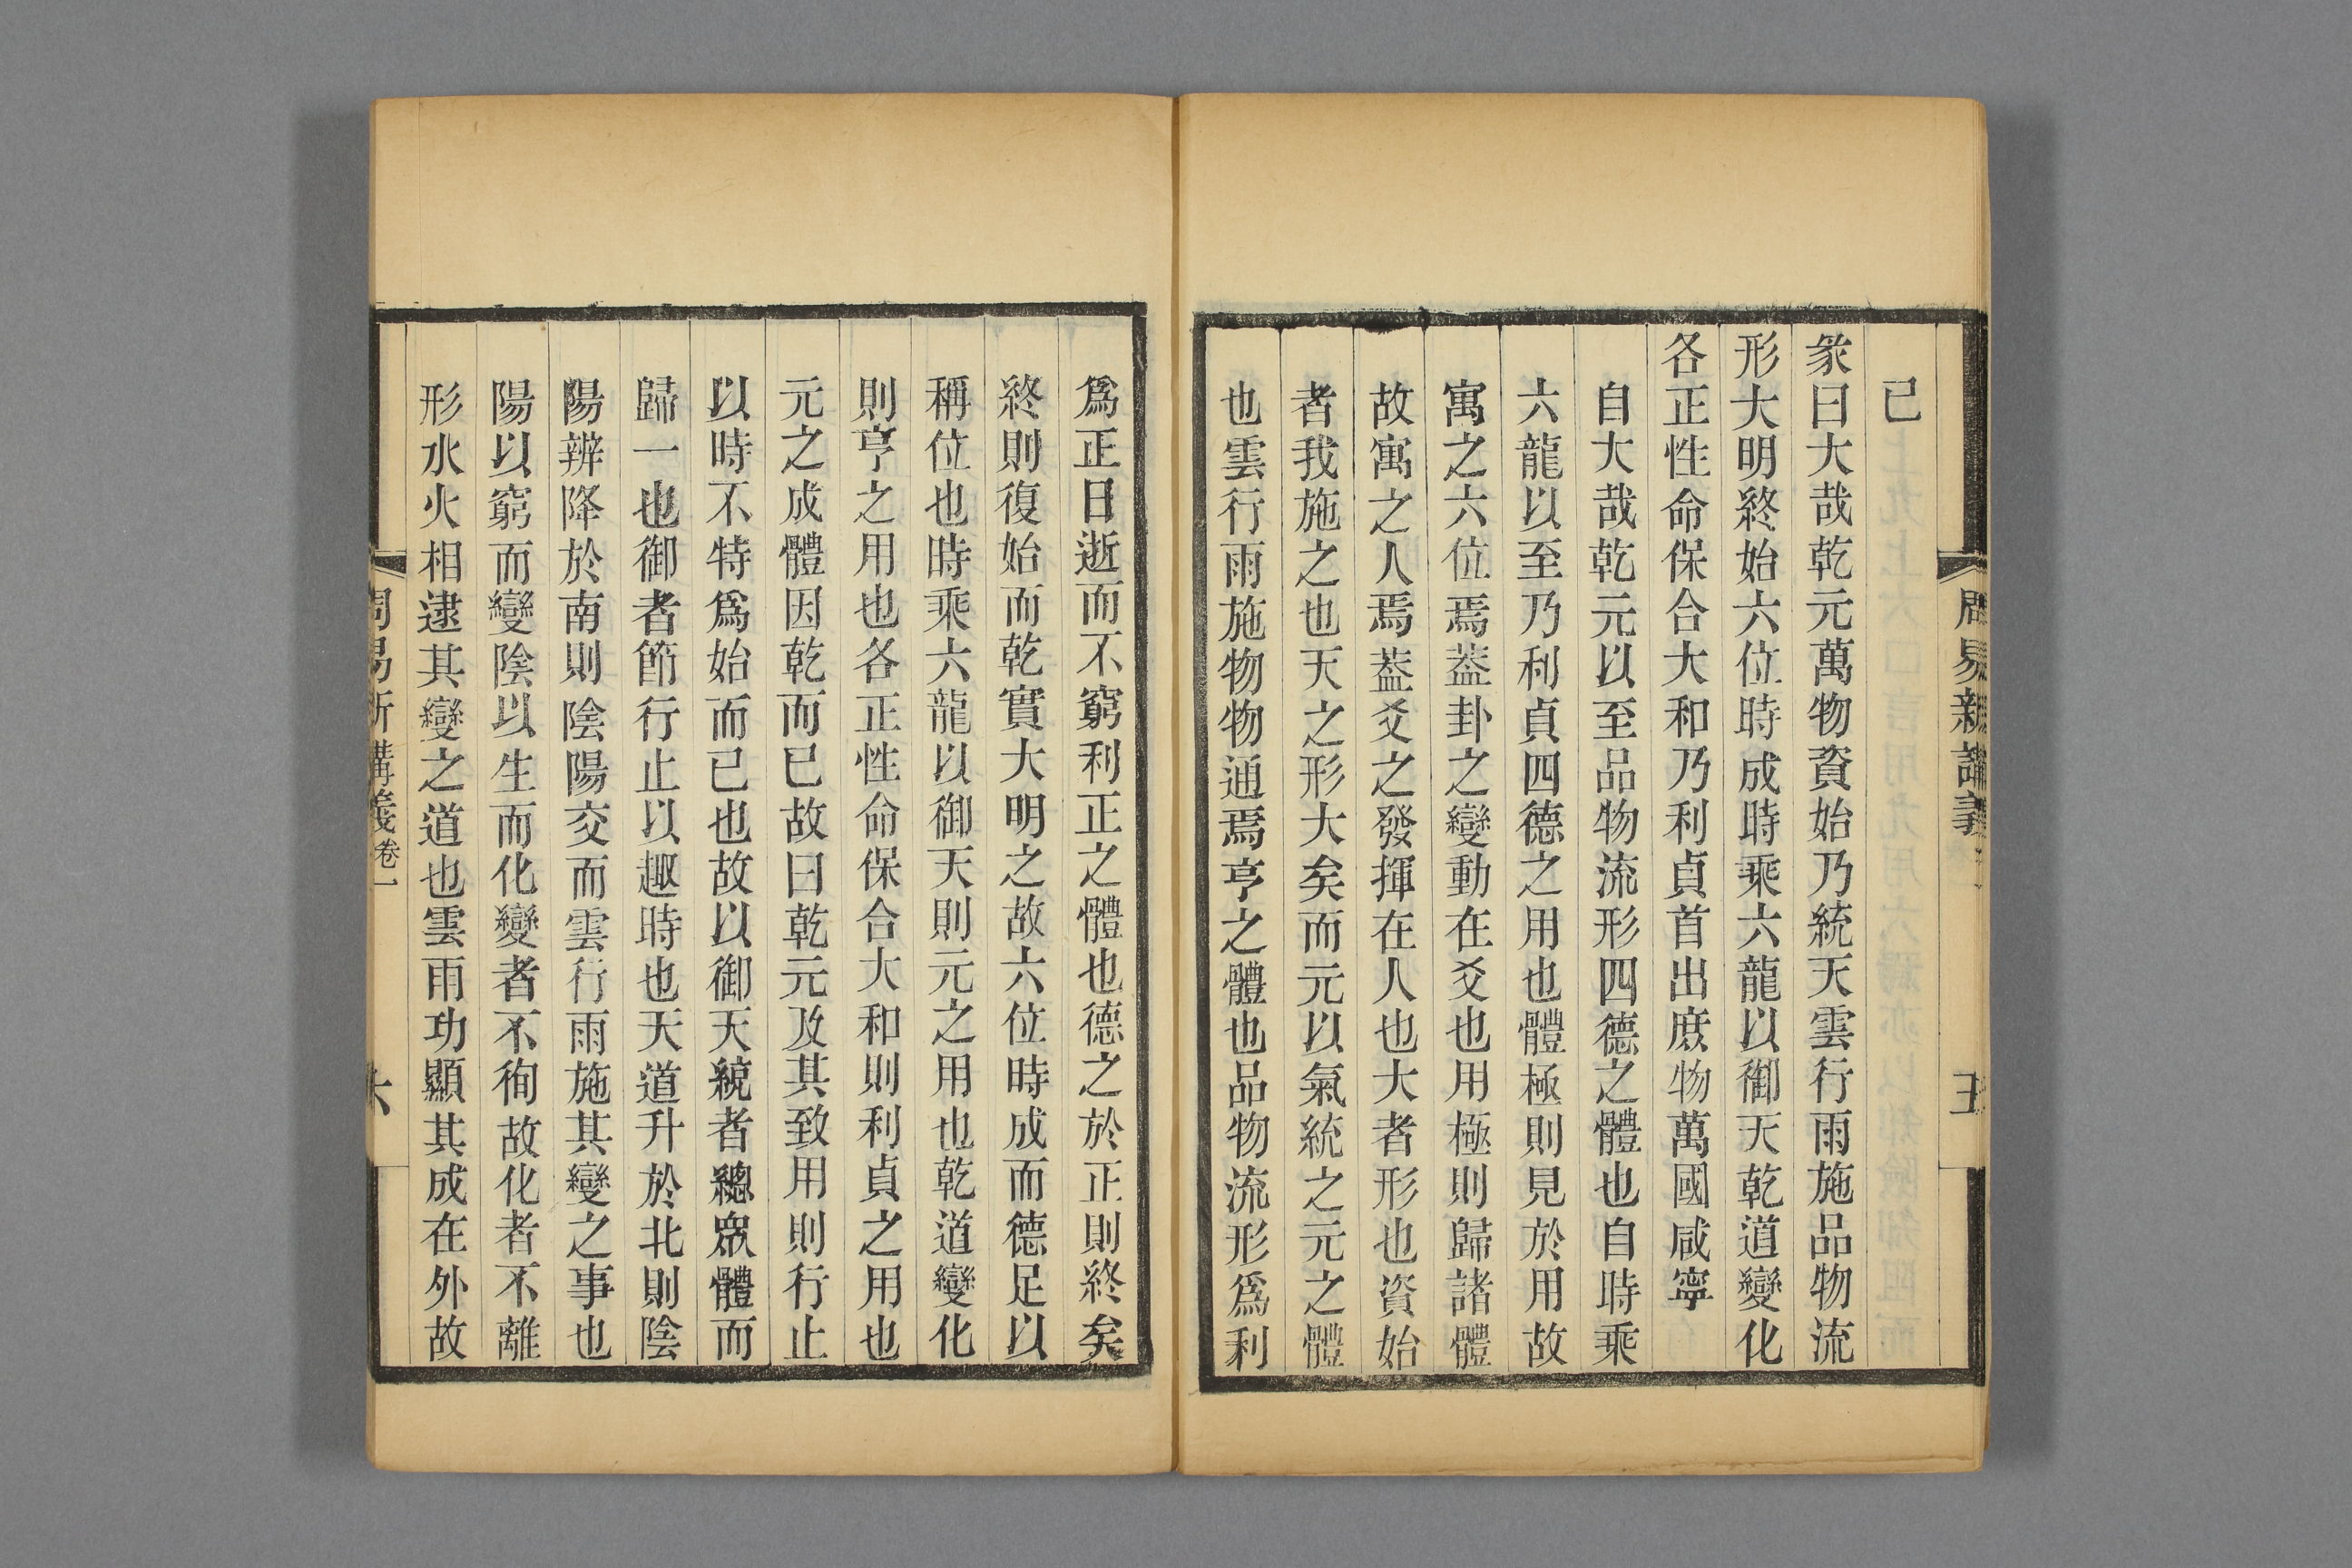 已
彖曰大哉乾元萬物資始乃統天雲行雨施品物流
形大明終始六位時成時乘六龍以御天乾道變化
各正性命保合大和乃利貞首出庶物萬國咸寧
自大哉乾元以至品物流形四德之體也自時乘
六龍以至乃利貞四德之用也體極則見於用故
寓之六位焉葢卦之變動在爻也用極則歸諸體
故寓之人焉葢爻之發揮在人也大者形也資始
者我施之也天之形大矣而元以氣統之元之體
也雲行雨施物物通焉亨之體也品物流形爲利
爲正日逝而不窮利正之體也德之於正則終矣
終則復始而乾實大明之故六位時成而德足以
稱位也時乘六龍以御天則元之用也乾道變化
則亨之用也各正性命保合大和則利貞之用也
元之成體因乾而已故曰乾元及其致用則行止
以時不特爲始而已也故以御天統者總眾體而
歸一也御者節行止以趣時也天道升於北則陰
陽辨降於南則陰陽交而雲行雨施其變之事也
陽以窮而變陰以生而化變者不徇故化者不離
形水火相逮其變之道也雲雨功顯其成在外故
周易新講義卷一
六